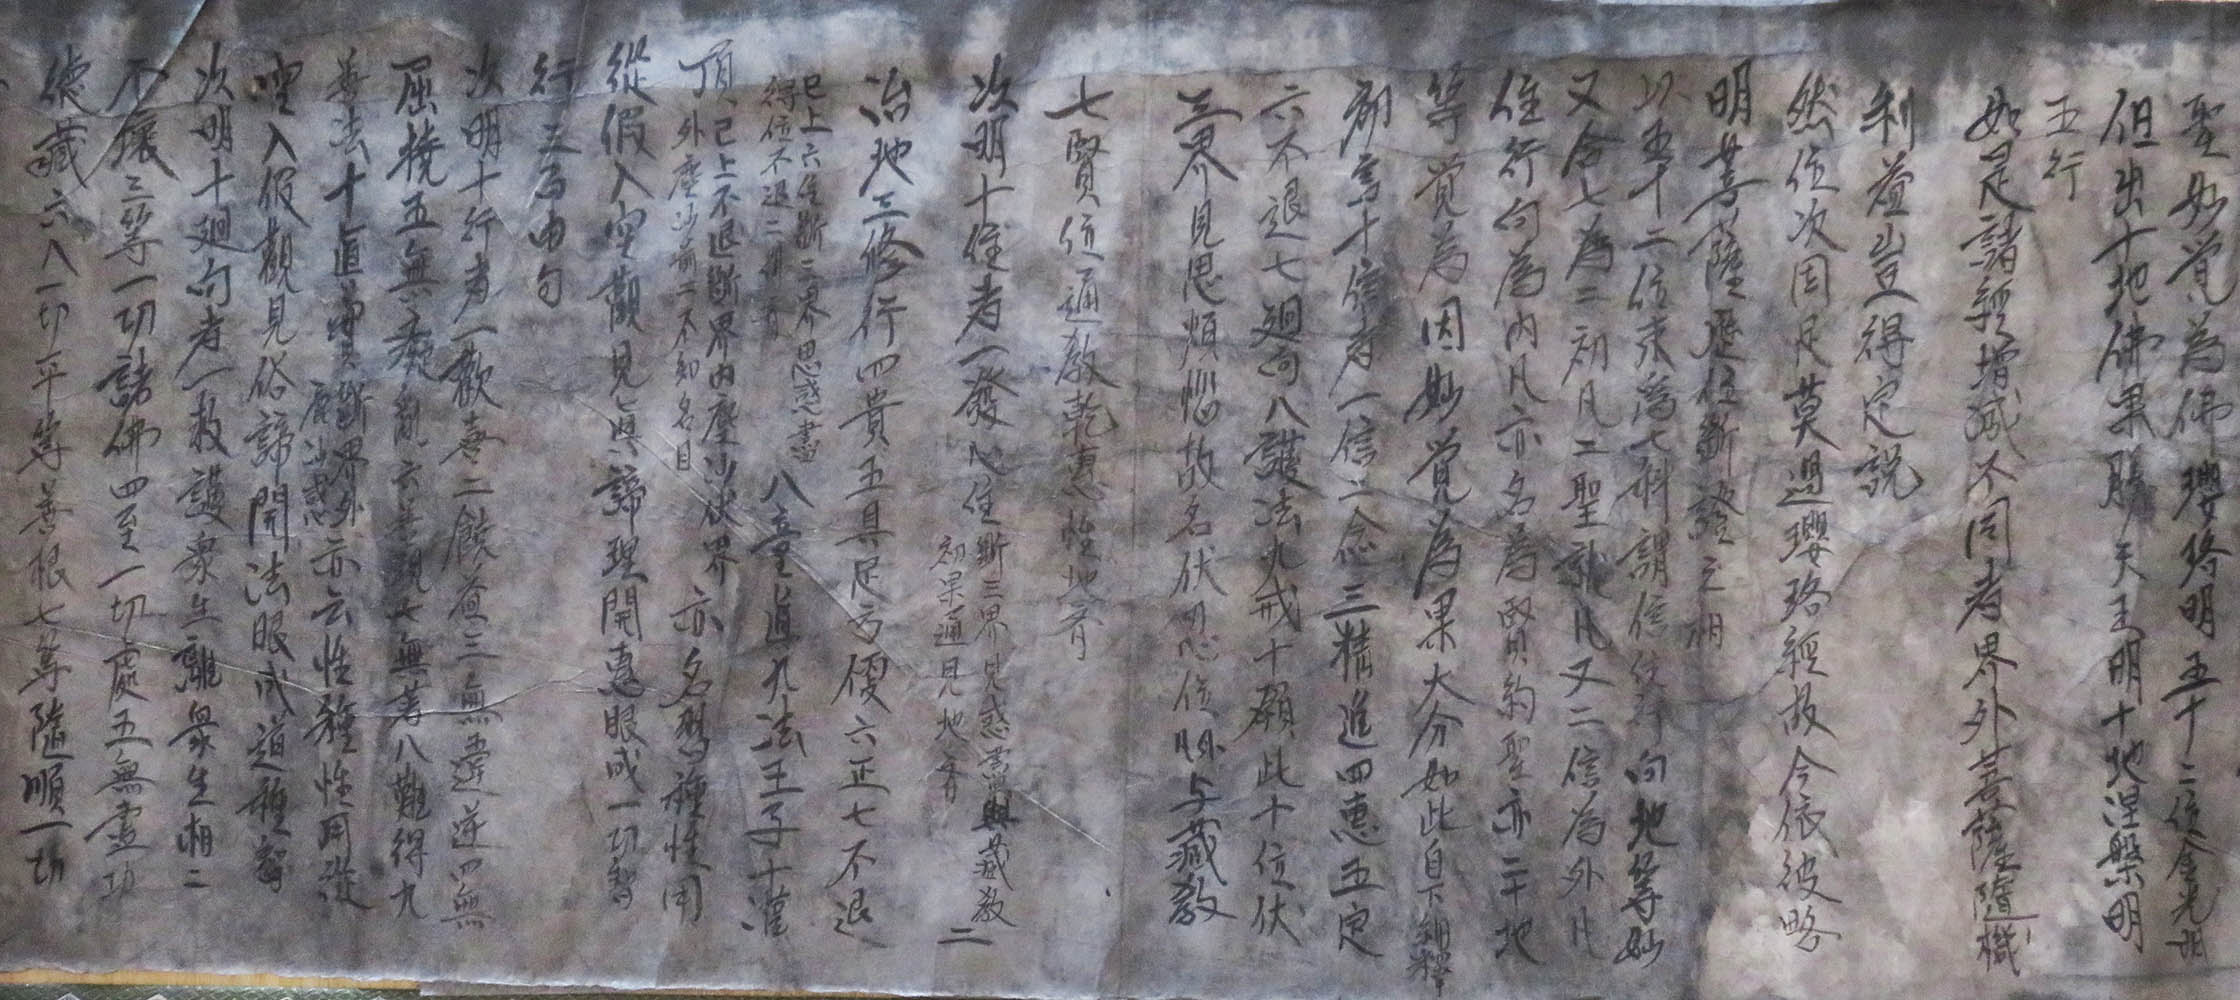 聖妙覺為佛瓔珞明五十二位金光明
但出十地佛果勝天王明十地涅槃明
五行
如是諸經增減不同者界外菩薩隨機
利益豈得定説
然位次周足莫過瓔珞經故今依彼略
明菩薩歷位斷證之相
以五十二位束為七科謂信住行向地等妙
又合七為二初凡二聖就凡又二信為外凡
住行向為内凡亦名為賢約聖亦二十地
等覺為因妙覺為果大分如此自下細釋
初言十信者一信二念三精進四惠五定
六不退七廻向八護法九戒十願此十位伏
三界見思煩惱故名伏忍位與藏教
七賢位通教乾惠性地齊
次明十住者一發心住斷三界見惑盡與藏教初果通見地齊二
治地三修行四貴五具足方便六正七不退
已上六住斷三界思惑盡得位不退二佛齊八童真九法王子十灌
頂已上不退斷界内塵沙伏界外塵沙前二不知名目亦名習種性用
從假入空觀見真諦理開惠眼成一切智
行三百由旬
次明十行者一歡喜二饒益三無違逆四無
屈撓五無癡亂六善現七無著八難得九
善法十真實斷界外塵沙惑亦云性種性用從
空入假觀見俗諦開法眼成道種智
次明十廻向者一救護衆生離衆生相二
不壞三等一切諸佛四至一切處五無盡功
德藏六入一切平等善根七等隨順一切